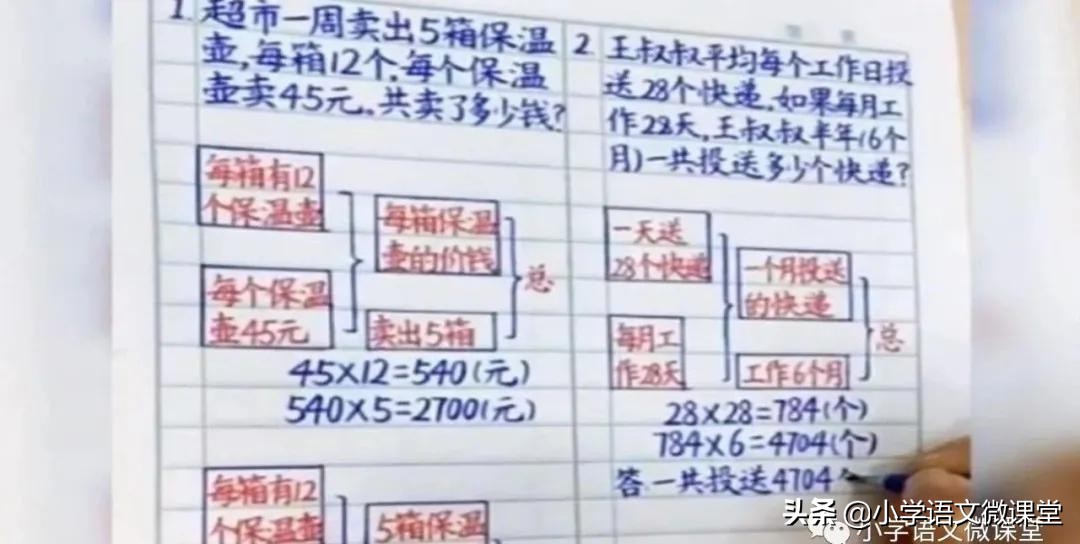 1. 超市一周卖出5箱保温
壶,每箱12个,每个保温
壶卖45元,共卖了多少钱?
每箱有12
个保温壶
每个保温
壶45元
每箱保温
壶的价钱
卖出5箱
总
45×12=540(元)
540×5=2700(元)
每箱有12
个保温壶
5箱保温
2 王叔叔平均每个工作日投
送28个快递,如果每月工
作28天,王叔叔半年(6个
月)一共投送多少个快递?
一天送
28个快递
每月工
作28天
一个月投送
的快递
工作6个月
总
28×28=784(个)
784×6=4704(个)
答 一共投送4704
头条 @小学语文微课堂
小学语文微课堂